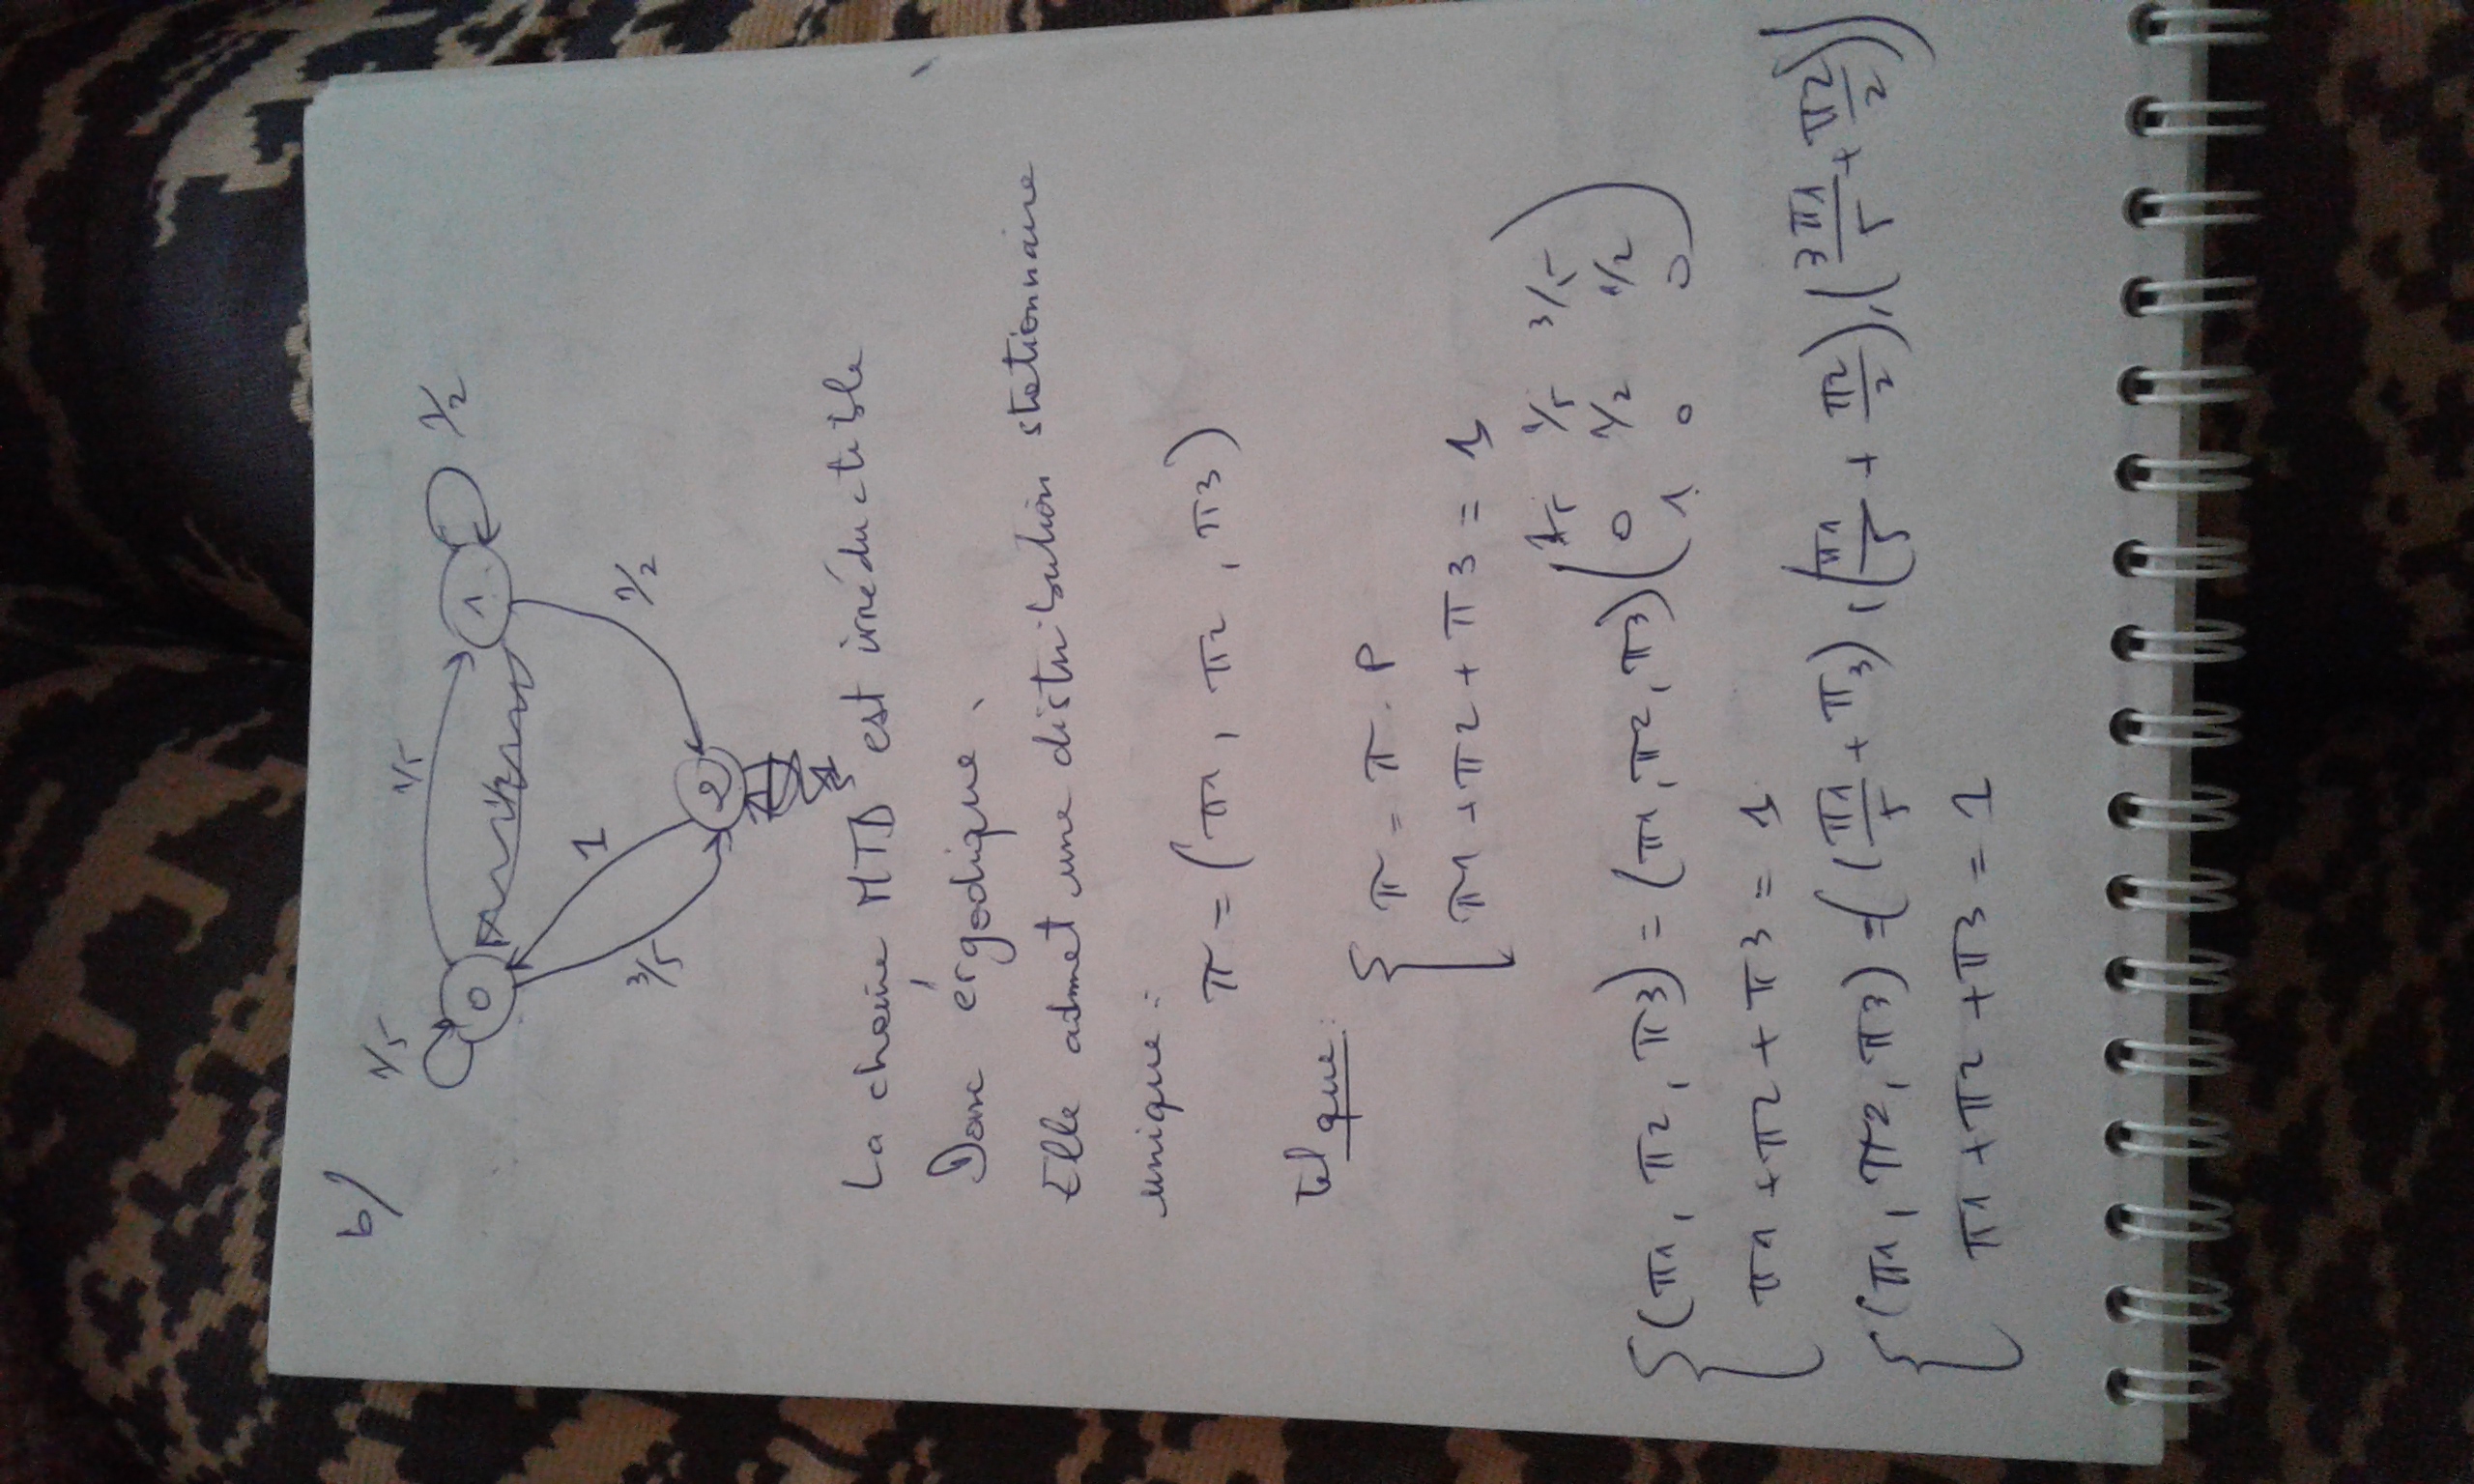 b/
1/5
1/5
0
1
1/2
1
3/5
1/2
2
La chaine MTD est irréductible
Donc érgodique.
Elle admet une distribution stationnaire
unique :
π = (π1, π2, π3)
tel que :
{ π = π . P
π1 + π2 + π3 = 1
{ (π1, π2, π3) = (π1, π2, π3) ( 1/5 1/5 3/5
0 1/2 1/2
1 0 0 )
π1 + π2 + π3 = 1
{ (π1, π2, π3) = ( (π1/5 + π3), (π1/5 + π2/2), (3π1/5 + π2/2) )
π1 + π2 + π3 = 1